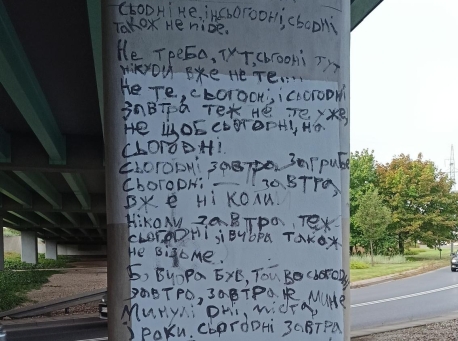 сьодні не, інсьогодні, сьодні
також не піде.
Не треба, тут, сьгодні тут
нікуди вже не те...
Не те, сьогосні, і сьогодні
завтра теж не те уже,
не щоб сьгодні, на
сьгодні.
сьгодрні завтра загрибе
сьогодні — завтра,
вже ні коли.
Ніколи завтра, теж
сьгодні, і вчора також
не візьме.
Б, вчора був, той во сьогодн
завтра, завтра ж мине
минулі дні, міста,
і роки. сьогодні завтра